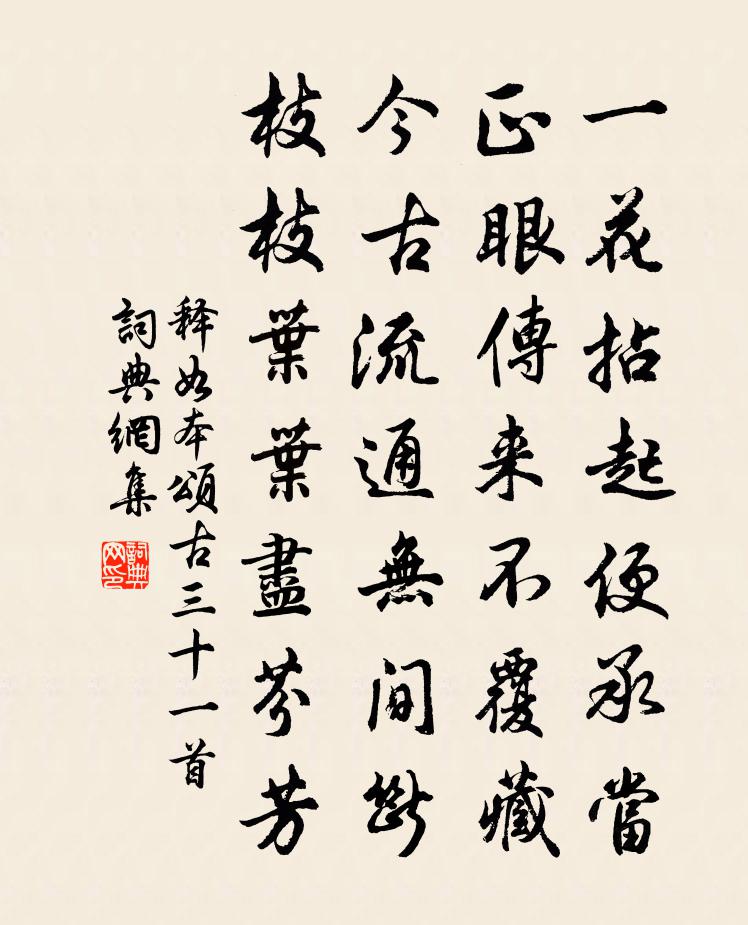 一花拈起便承當
正眼傳来不覆藏
今古流通無間斷
枝枝葉葉盡芬芳
释如本頌古三十一首
詞典網集
詞典网印